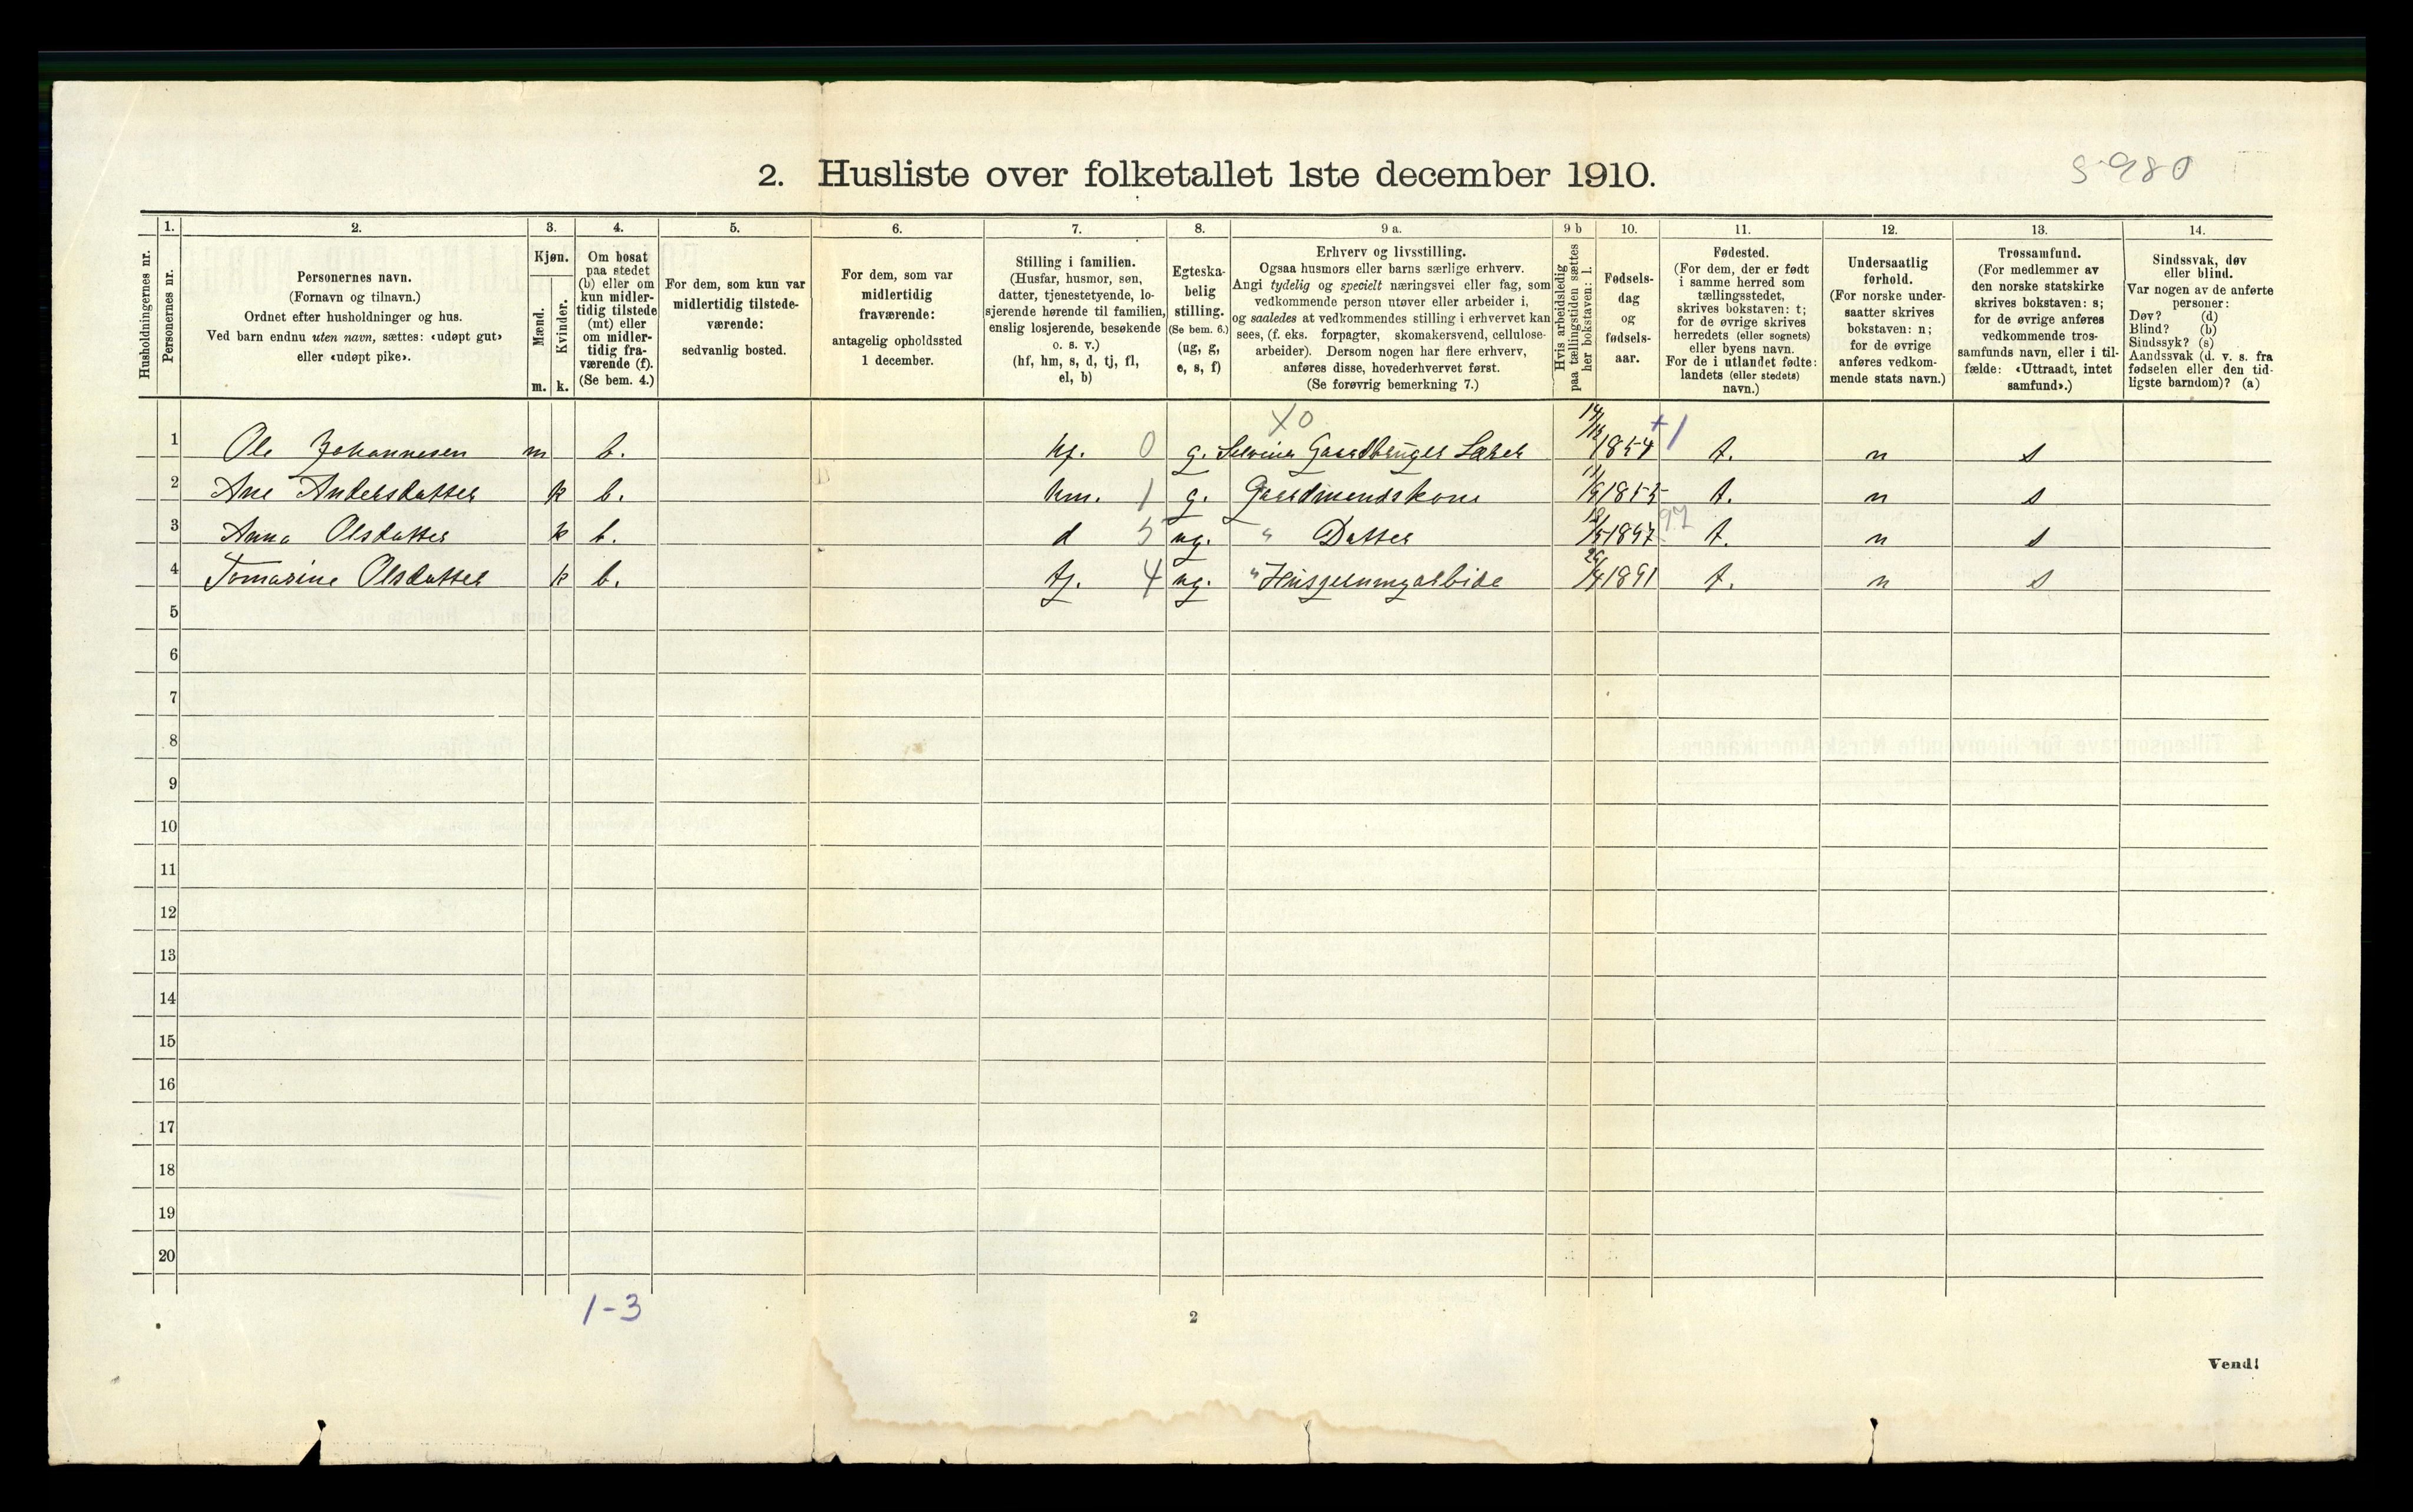 2. Husliste over folketallet 1ste december 1910.
5980
Husholdningernes nr.
1. Personernes nr.
2. Personernes navn.
(Fornavn og tilnavn.)
Ordnet efter husholdninger og hus.
Ved barn endnu uten navn, sættes: «udøpt gut»
eller «udøpt pike».
3. Kjøn.
Mænd. m.
Kvinder. k.
4. Om bosat
paa stedet
(b) eller om
kun midler-
tidig tilstede
(mt) eller
om midler-
tidig fra-
værende (f).
(Se bem. 4.)
5. For dem, som kun var
midlertidig tilstede-
værende:
sedvanlig bosted.
6. For dem, som var
midlertidig
fraværende:
antagelig opholdssted
1 december.
7. Stilling i familien.
(Husfar, husmor, søn,
datter, tjenestetyende, lo-
sjerende hørende til familien,
enslig losjerende, besøkende
o. s. v.)
(hf, hm, s, d, tj, fl,
el, b)
8. Egteska-
belig
stilling.
(Se bem. 6.)
(ug, g,
e, s, f)
9 a. Erhverv og livsstilling.
Ogsaa husmors eller barns særlige erhverv.
Angi tydelig og specielt næringsvei eller fag, som
vedkommende person utøver eller arbeider i,
og saaledes at vedkommendes stilling i erhvervet kan
sees, (f. eks. forpagter, skomakersvend, cellulose-
arbeider). Dersom nogen har flere erhverv,
anføres disse, hovederhvervet først.
(Se forøvrig bemerkning 7.)
9 b Hvis arbeidsledig
paa tællingstiden sættes
her bokstaven: l.
10. Fødsels-
dag
og
fødsels-
aar.
11. Fødested.
(For dem, der er født
i samme herred som
tællingsstedet,
skrives bokstaven: t;
for de øvrige skrives
herredets (eller sognets)
eller byens navn.
For de i utlandet fødte:
landets (eller stedets)
navn.)
12. Undersaatlig
forhold.
(For norske under-
saatter skrives
bokstaven: n;
for de øvrige
anføres vedkom-
mende stats navn.)
13. Trossamfund.
(For medlemmer av
den norske statskirke
skrives bokstaven: s;
for de øvrige anføres
vedkommende tros-
samfunds navn, eller i til-
fælde: «Uttraadt, intet
samfund».)
14. Sindssvak, døv
eller blind.
Var nogen av de anførte
personer:
Døv? (d)
Blind? (b)
Sindssyk? (s)
Aandssvak (d. v. s. fra
fødselen eller den tid-
ligste barndom)? (a)
X0
1 Ole Johannesen m b. hf. 0 g. Gaardbruger 1854 +1 t. n s
2 Ane Andersdatter k b. hm. 1 g. Gaardmandskone 1855 t. n s
3 Anna Olsdatter k b. d 5 ug. " Datter 1897 97 t. n s
4 Tomasine Olsdatter k b. tj. 4 ug. " 1891 t. n s
5
6
7
8
9
10
11
12
13
14
15
16
17
18
19
20
1-3
2
Vend!